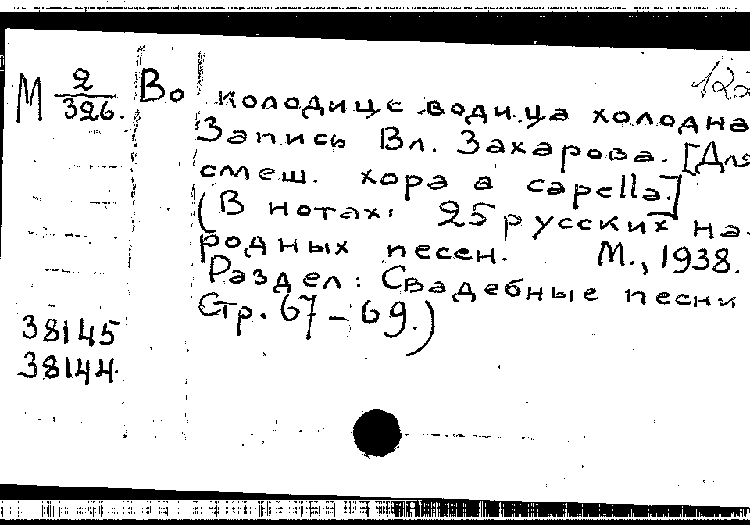 122
М 2/326. Во колодице водица холодна
Запись Вл. Захарова. [Для
смеш. хора a capella.]
(В нотах: 25 русских на-
родных песен. М., 1938.
Раздел: Свадебные песни
Стр. 67-69.)
38145
38144